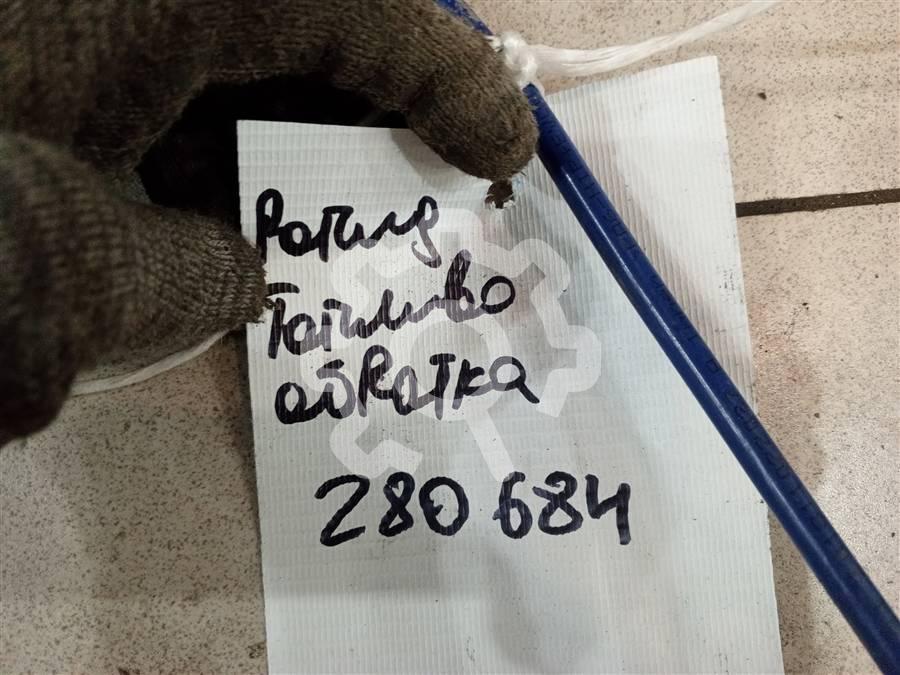 Ратилд
Топливо
обратка
280 684